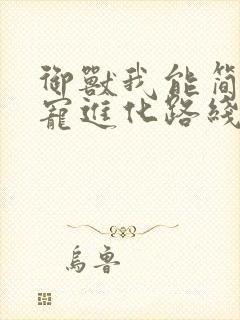 御獸我能簡
寵進化路綫
烏魯